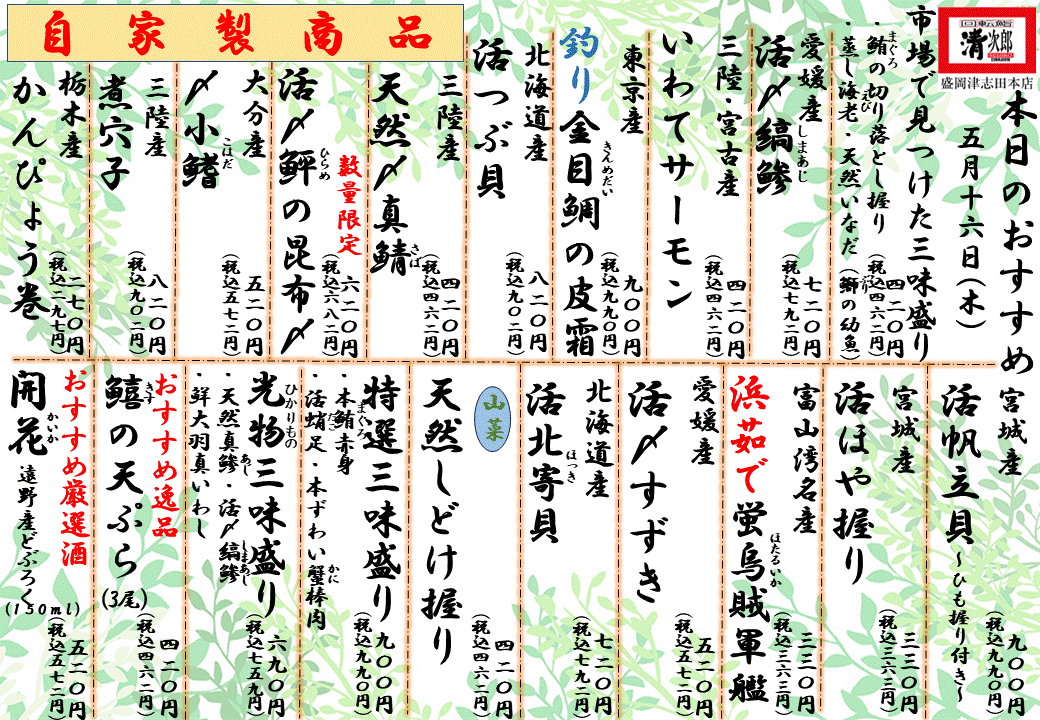 回転鮨
清次郎
盛岡津志田本店
本日のおすすめ
五月十六日(木)
市場で見つけた三味盛り
・鮪の切り落とし握り
まぐろ
・蒸し海老・天然いなだ(鰤の幼魚)
えび
ぶり
四二〇円
(税込四六二円)
愛媛産
活〆縞鯵
しまあじ
七二〇円
(税込七九二円)
三陸・宮古産
いわてサーモン
四二〇円
(税込四六二円)
東京産
釣り金目鯛の皮霜
きんめだい
九〇〇円
(税込九九〇円)
北海道産
活つぶ貝
八二〇円
(税込九〇二円)
三陸産
天然〆真鯖
さば
四二〇円
(税込四六二円)
数量限定
活〆鮃の昆布〆
ひらめ
六二〇円
(税込六八二円)
大分産
〆小鰭
こはだ
五二〇円
(税込五七二円)
三陸産
煮穴子
八二〇円
(税込九〇二円)
栃木産
かんぴょう巻
二七〇円
(税込二九七円)
自家製商品
宮城産
活帆立貝~ひも握り付き~
九〇〇円
(税込九九〇円)
宮城産
活ほや握り
三三〇円
(税込三六三円)
富山湾名産
浜茹で蛍烏賊軍艦
ほたるいか
三三〇円
(税込三六三円)
愛媛産
活〆すずき
五二〇円
(税込五七二円)
北海道産
活北寄貝
ほっき
七二〇円
(税込七九二円)
山菜
天然しどけ握り
四二〇円
(税込四六二円)
特選三味盛り
・本鮪赤身
まぐろ
・活蛸足・本ずわい蟹棒肉
たこ
かに
九〇〇円
(税込九九〇円)
光物三味盛り
ひかりもの
・天然真鯵・活〆縞鯵
あじ
しまあじ
・鮮大羽真いわし
六九〇円
(税込七五九円)
おすすめ逸品
鱚の天ぷら(3尾)
きす
四二〇円
(税込四六二円)
おすすめ厳選酒
開花 遠野産どぶろく
かいか
(150ml)
五二〇円
(税込五七二円)